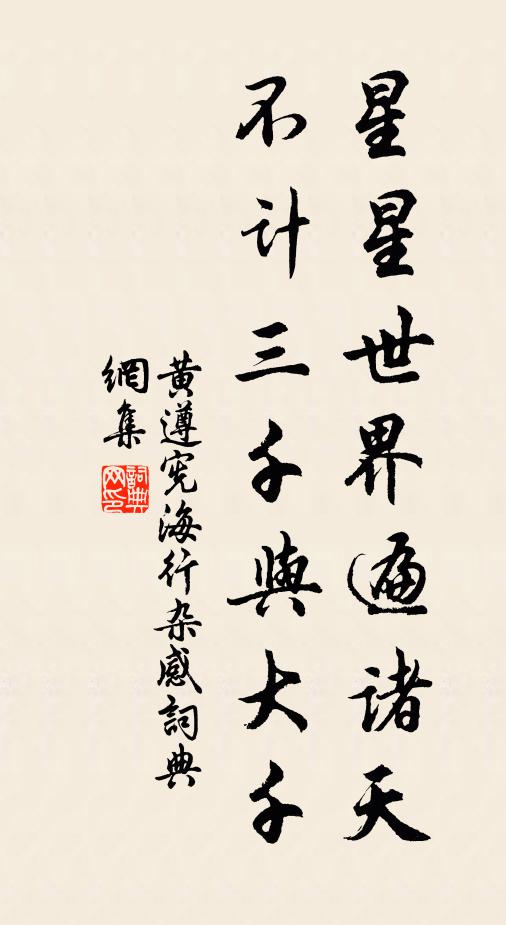 星星世界遍諸天
不计三千與大千
黄遵宪海行杂感詞典
網集
詞典网印